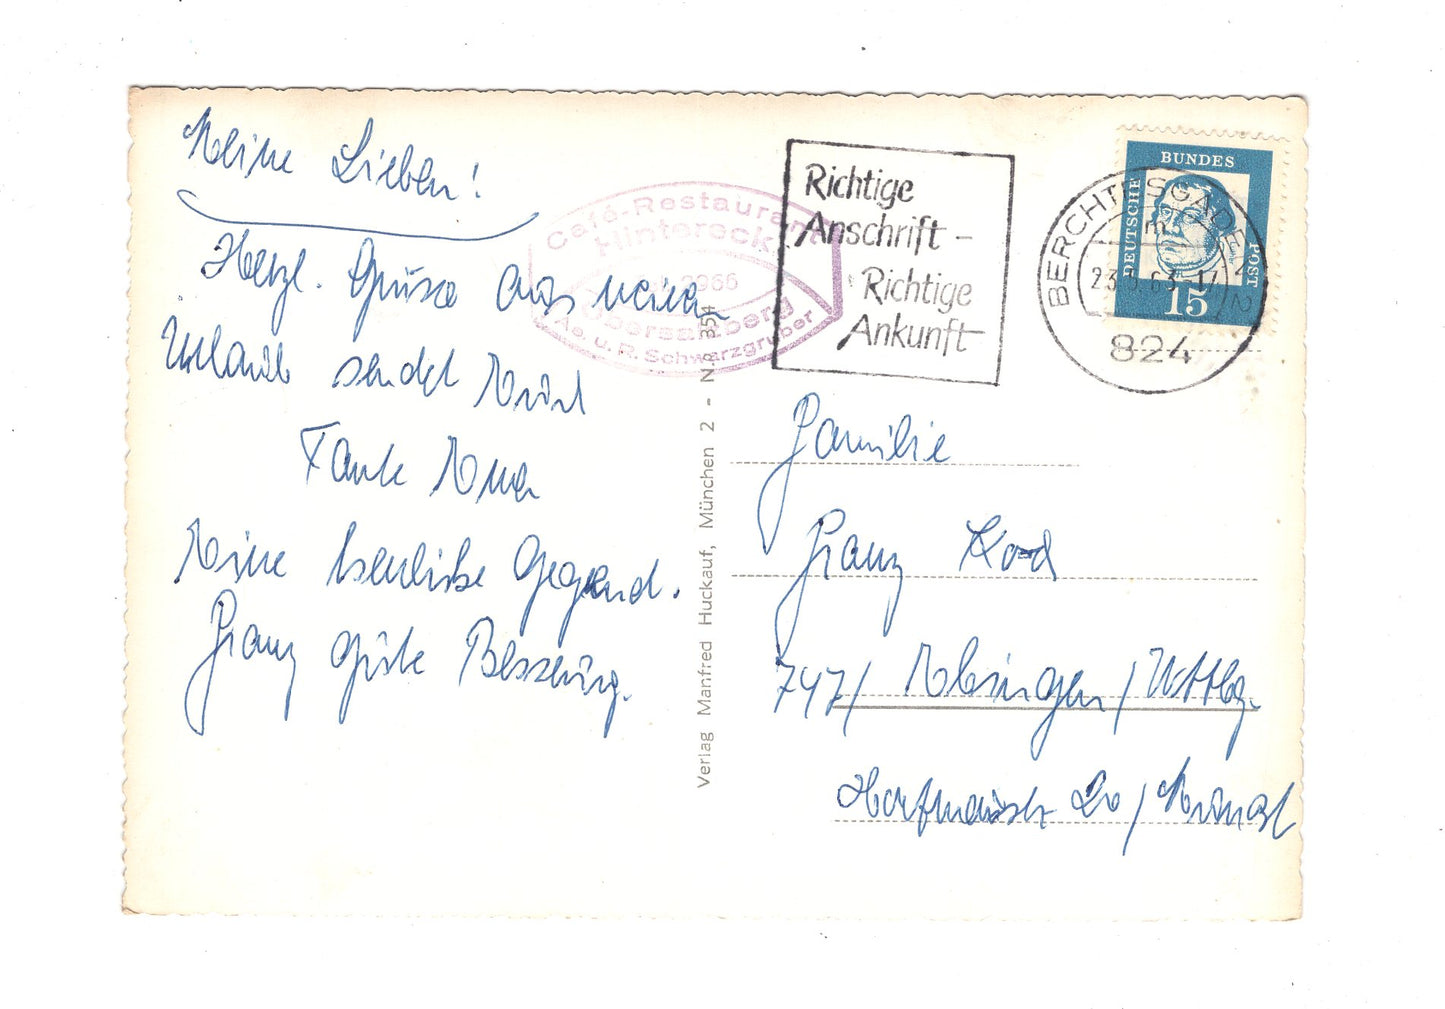 Meine Lieben!
Herzl. Grüsse aus meinem
Urlaub sendet Euch
Tante Anna
Eine herrliche Gegend.
Franz gute Besserung.
Café-Restaurant
Hintereck
2966
Obersalzberg
A. u. R. Schwarzgruber
Verlag Manfred Huckauf, München 2 - Nr. 354
Richtige
Anschrift –
Richtige
Ankunft
BERCHTESGADEN 2
m
23.9.63-17
824
BUNDES
DEUTSCHE
POST
15
Familie
Franz
747/ Ebingen / Wttbg.